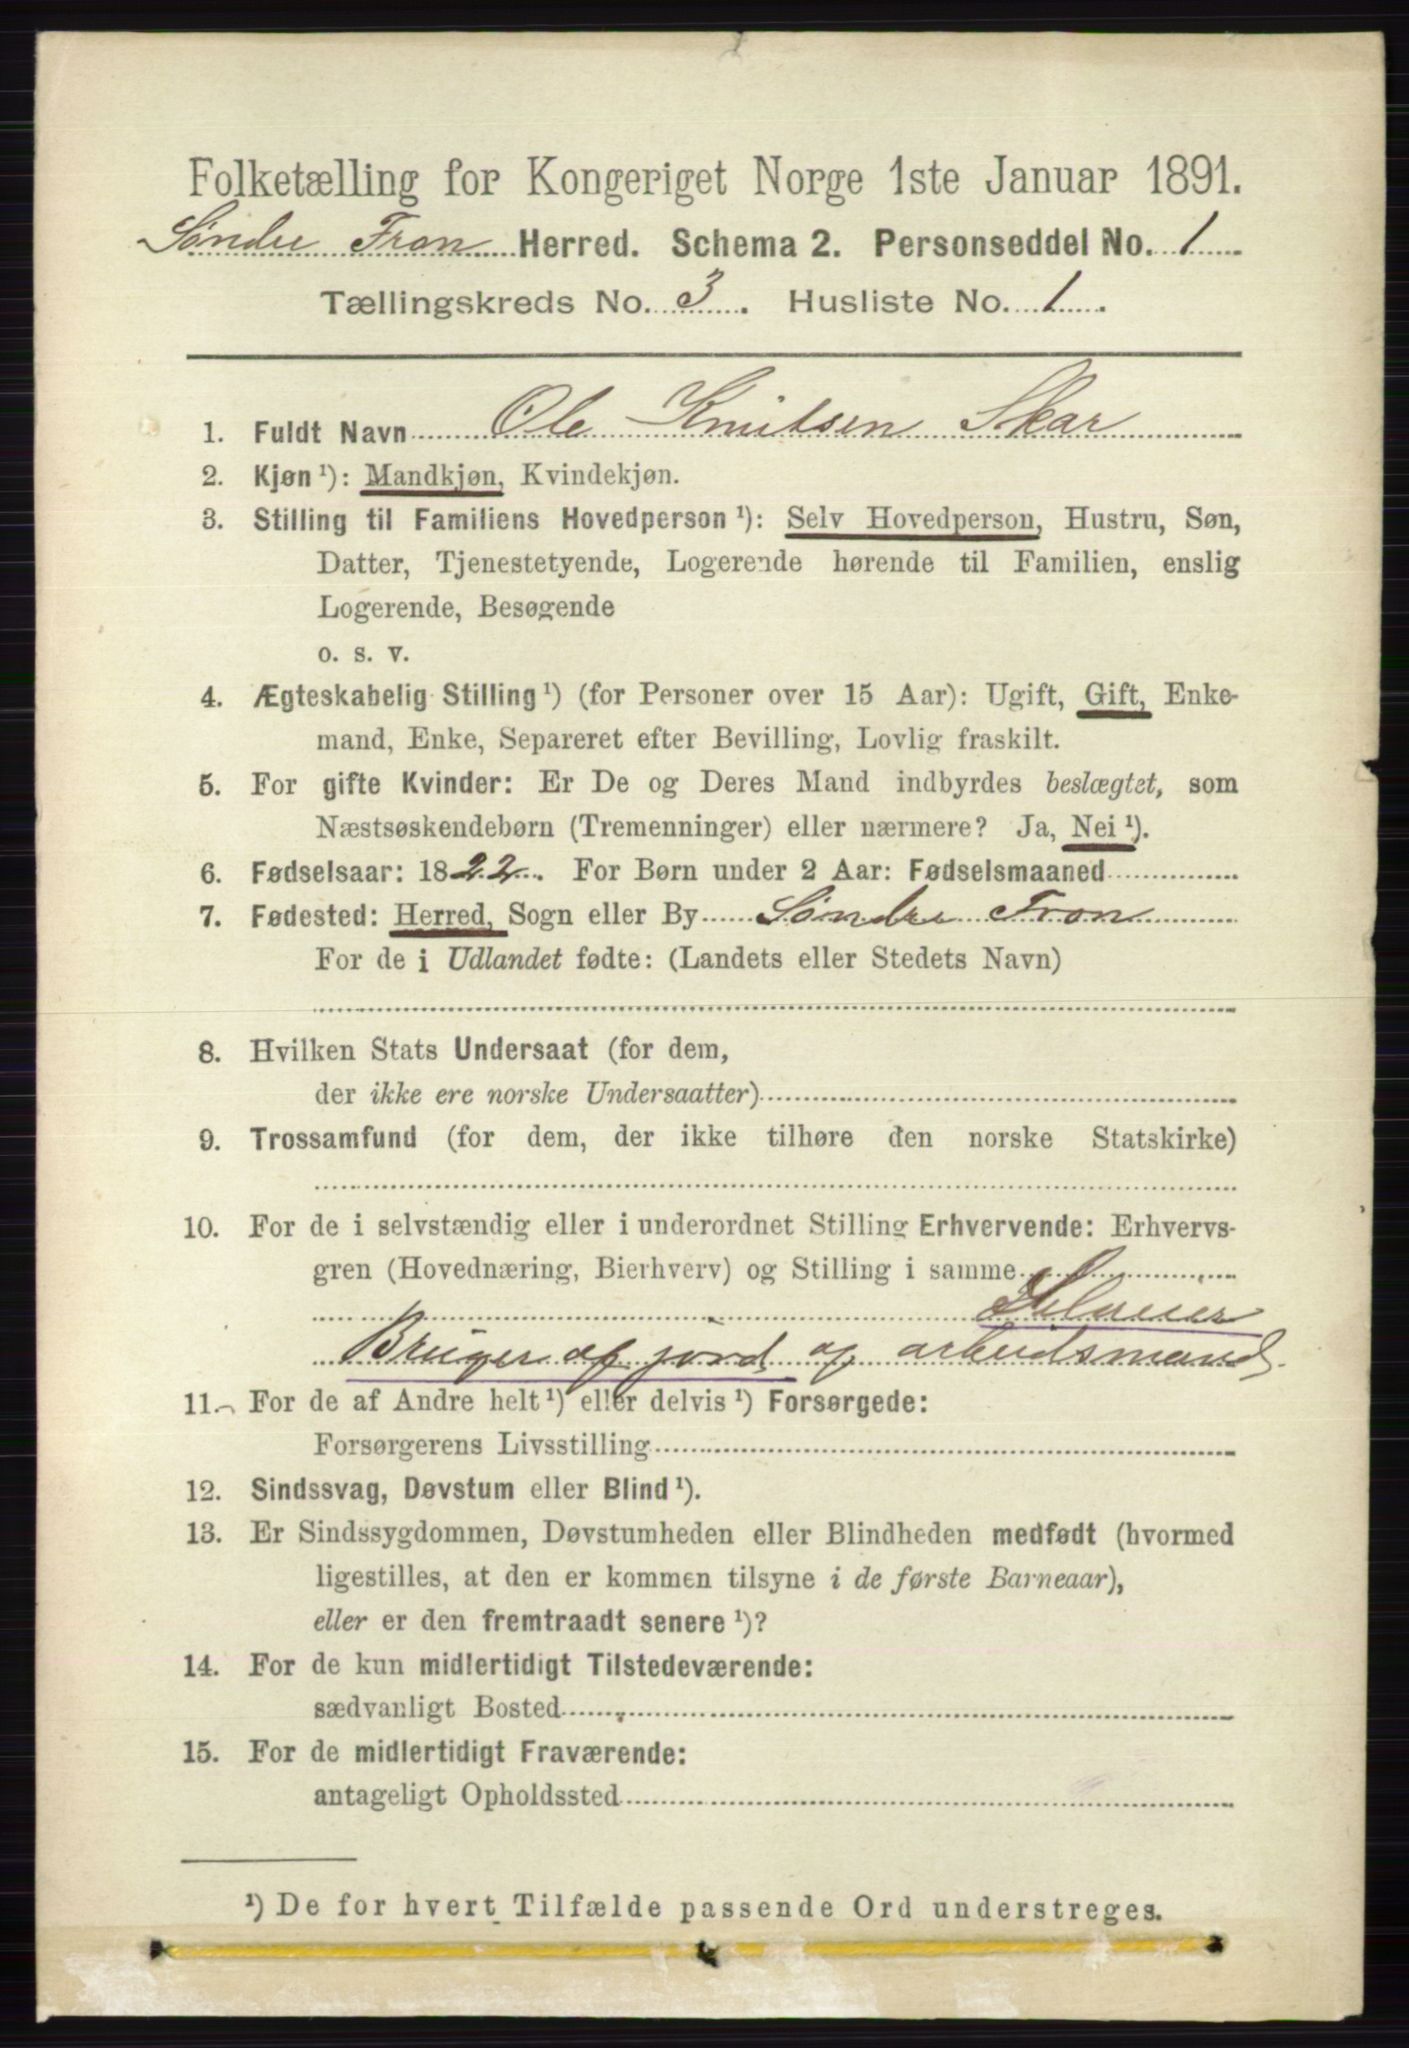 Folketælling for Kongeriget Norge 1ste Januar 1891.
Søndre Fron Herred. Schema 2. Personseddel No. 1
Tællingskreds No. 3. Husliste No. 1.
1. Fuldt Navn Ole Knutsen Skar
2. Kjøn ¹): Mandkjøn, Kvindekjøn.
3. Stilling til Familiens Hovedperson ¹): Selv Hovedperson, Hustru, Søn,
Datter, Tjenestetyende, Logerende hørende til Familien, enslig
Logerende, Besøgende
o. s. v.
4. Ægteskabelig Stilling ¹) (for Personer over 15 Aar): Ugift, Gift, Enke-
mand, Enke, Separeret efter Bevilling, Lovlig fraskilt.
5. For gifte Kvinder: Er De og Deres Mand indbyrdes beslægtet, som
Næstsøskendebørn (Tremenninger) eller nærmere? Ja, Nei ¹).
6. Fødselsaar: 1822. For Børn under 2 Aar: Fødselsmaaned
7. Fødested: Herred, Sogn eller By Søndre Fron
For de i Udlandet fødte: (Landets eller Stedets Navn)
8. Hvilken Stats Undersaat (for dem,
der ikke ere norske Undersaatter)
9. Trossamfund (for dem, der ikke tilhøre den norske Statskirke)
10. For de i selvstændig eller i underordnet Stilling Erhvervende: Erhvervs-
gren (Hovednæring, Bierhverv) og Stilling i samme
Selveier
Bruger af jord og arbeidsmand.
11. For de af Andre helt ¹) eller delvis ¹) Forsørgede:
Forsørgerens Livsstilling
12. Sindssvag, Døvstum eller Blind ¹).
13. Er Sindssygdommen, Døvstumheden eller Blindheden medfødt (hvormed
ligestilles, at den er kommen tilsyne i de første Barneaar),
eller er den fremtraadt senere ¹)?
14. For de kun midlertidigt Tilstedeværende:
sædvanligt Bosted
15. For de midlertidigt Fraværende:
antageligt Opholdssted
¹) De for hvert Tilfælde passende Ord understreges.